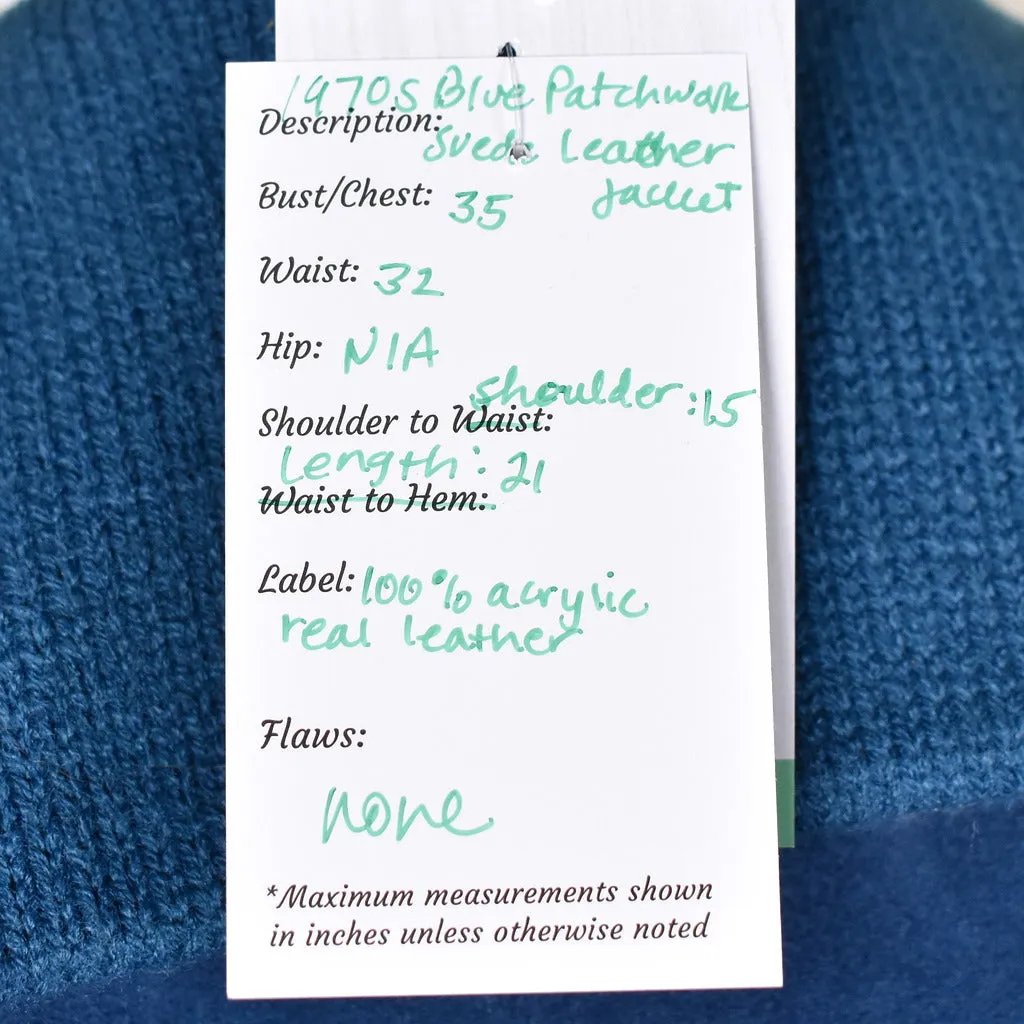 1970s Blue Patchwork
Description:
Suede Leather
Bust/Chest: 35 Jacket
Waist: 32
Hip: N/A
shoulder: 15
Shoulder to Waist:
Length: 21
Waist to Hem:
Label: 100% acrylic
real leather
Flaws:
none
*Maximum measurements shown
in inches unless otherwise noted